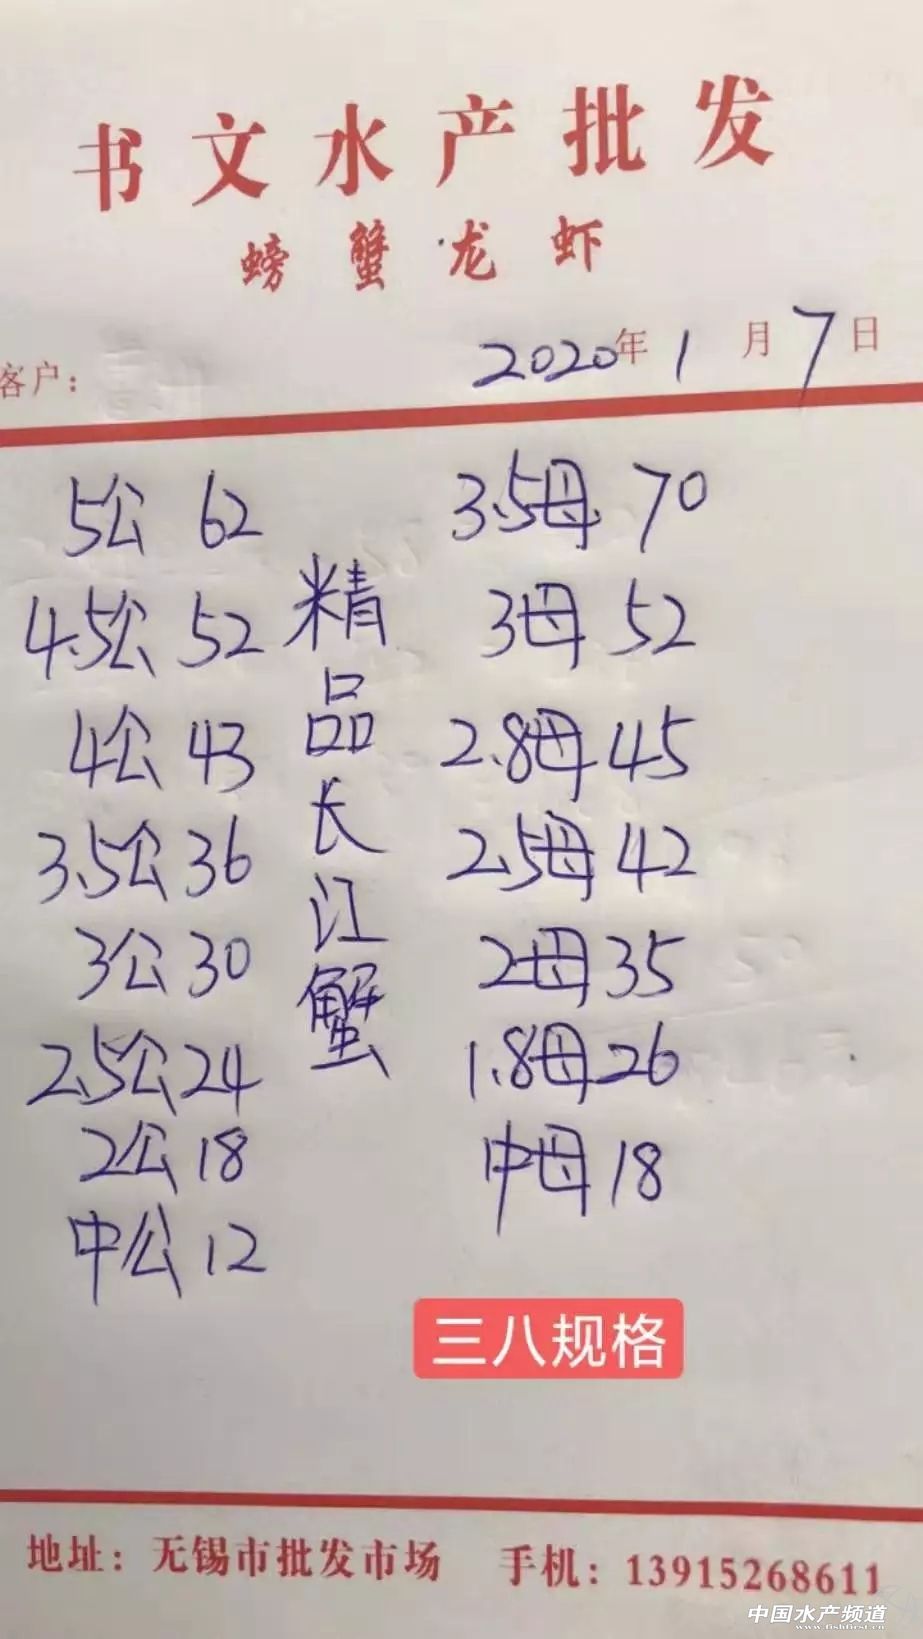 书文水产批发
螃蟹·龙虾
客户： 2020年1月7日
5公 62 3.5母 70
4.5公 52 3母 52
4公 43 2.8母 45
3.5公 36 2.5母 42
3公 30 2母 35
2.5公 24 1.8母 26
2公 18 中母 18
中公 12
精品长江蟹
三八规格
地址：无锡市批发市场 手机：13915268611
中国水产频道
www.fishfirst.cn